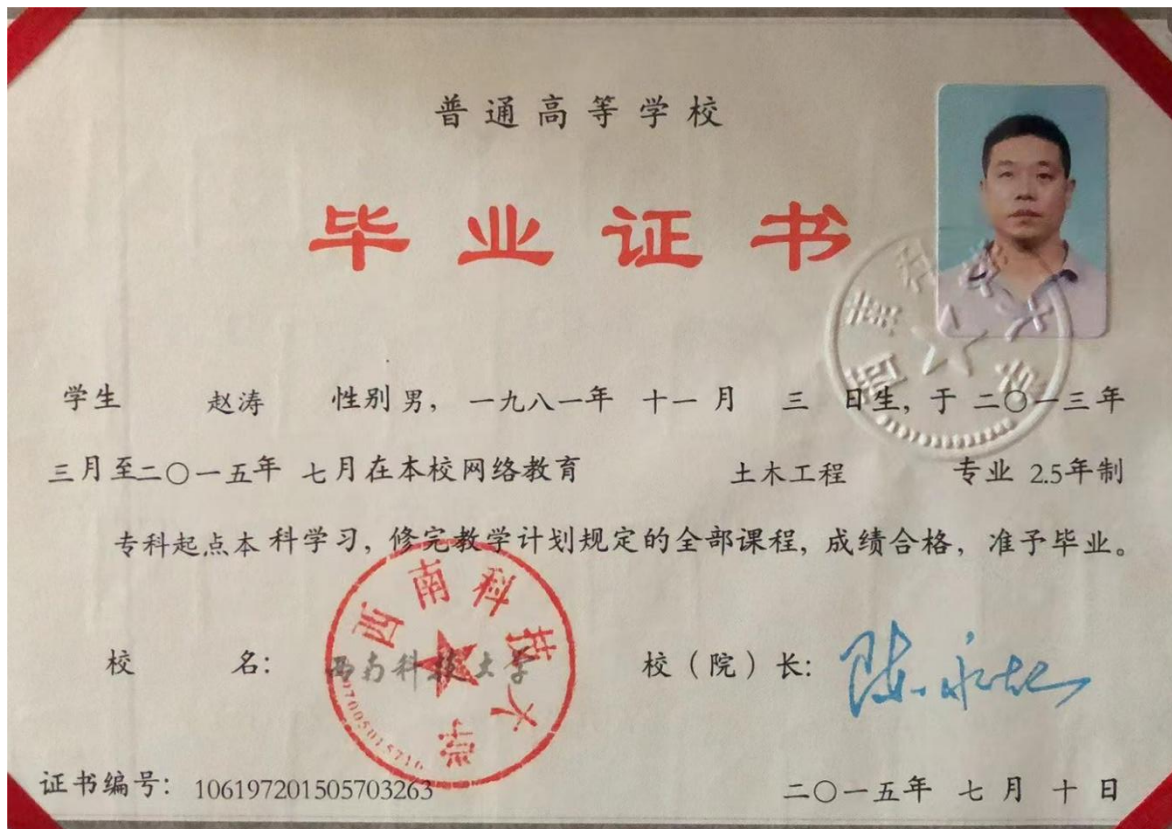 普通高等学校
毕业证书
学生 赵涛 性别 男， 一九八一年 十一月 三 日生，于 二〇一三年
三月至二〇一五年 七月在本校网络教育 土木工程 专业 2.5年制
专科起点本科学习，修完教学计划规定的全部课程，成绩合格，准予毕业。
校 名： 西南科技大学
校（院）长：
西南科技大学
证书编号：106197201505703263
二〇一五年 七月 十日